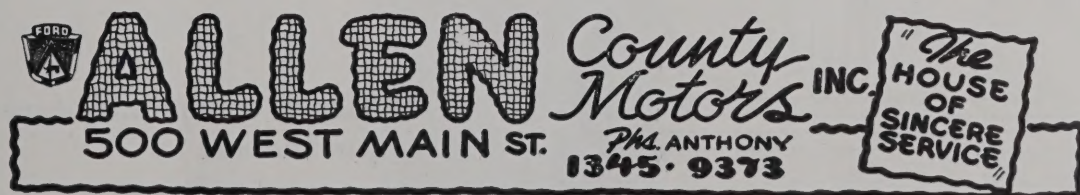 FORD
ALLEN County Motors INC.
500 WEST MAIN ST.
Phs. ANTHONY
1345 · 9373
"The
HOUSE
OF
SINCERE
SERVICE"